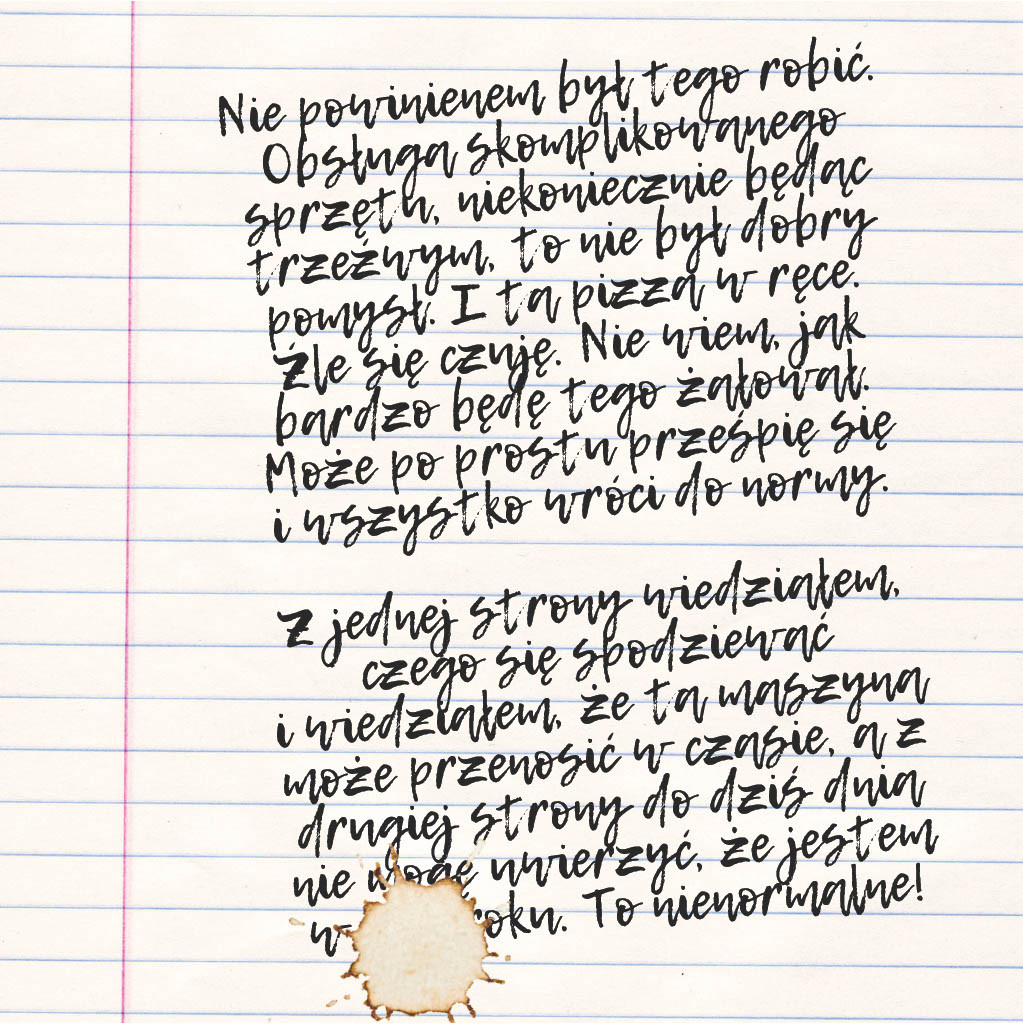 Nie powinienem był tego robić.
Obsługa skomplikowanego
sprzętu, niekoniecznie będąc
trzeźwym, to nie był dobry
pomysł. I ta pizza w ręce.
Źle się czuję. Nie wiem, jak
bardzo będę tego żałował.
Może po prostu prześpię się
i wszystko wróci do normy.
Z jednej strony wiedziałem,
czego się spodziewać
i wiedziałem, że ta maszyna
może przenosić w czasie, a z
drugiej strony do dziś dnia
nie mogę uwierzyć, że jestem
w roku. To nienormalne!